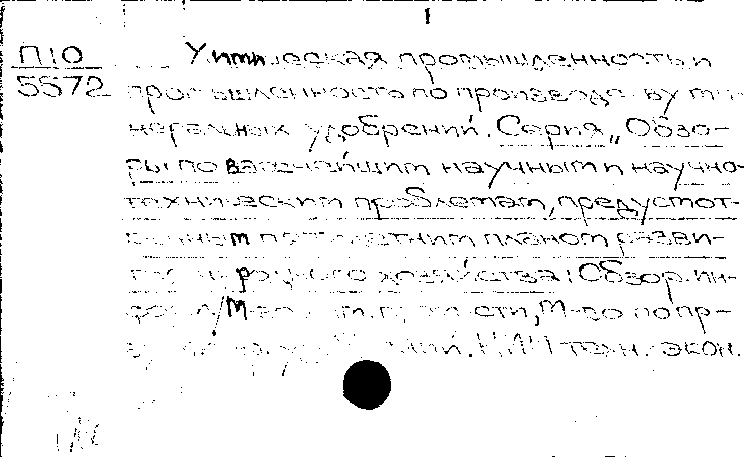 1
П10 Химическая промышленность и
5572 промышленность по производству ми-
неральных удобрений. Серия „Обзо-
ры по важнейшим научным и научно-
техническим проблемам, предусмот-
ренным пятилетним планом разви-
тия народного хозяйства: Обзор. ин-
форм. / М-во хим. пром-сти, М-во по пр-
ву удобрений. НИИ техн.-экон.